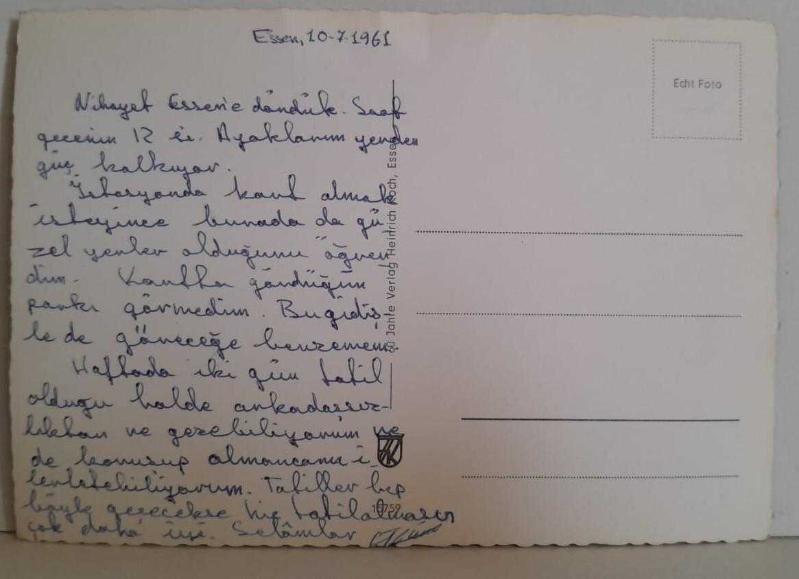 Essen, 10-7-1961
Nihayet Essen'e döndük. Saat
gecenin 12 si. Ayaklarım yerden
güç kalkıyor.
İstasyonda kart almak
isteyince burada da gü-
zel yerler olduğunu öğren-
dim. Kartta gördüğün
parkı görmedim. Bu gidiş-
le de göreceğe benzemem.
Haftada iki gün tatil
olduğu halde arkadaşsız-
lıktan ne gezebiliyorum ne
de konuşup almancamı i-
lerletebiliyorum. Tatiller hep
böyle geçecekse hiç tatil olmasın
çok daha iyi. Selâmlar
Echt Foto
50 Jahre Verlag Heinrich Koch, Essen